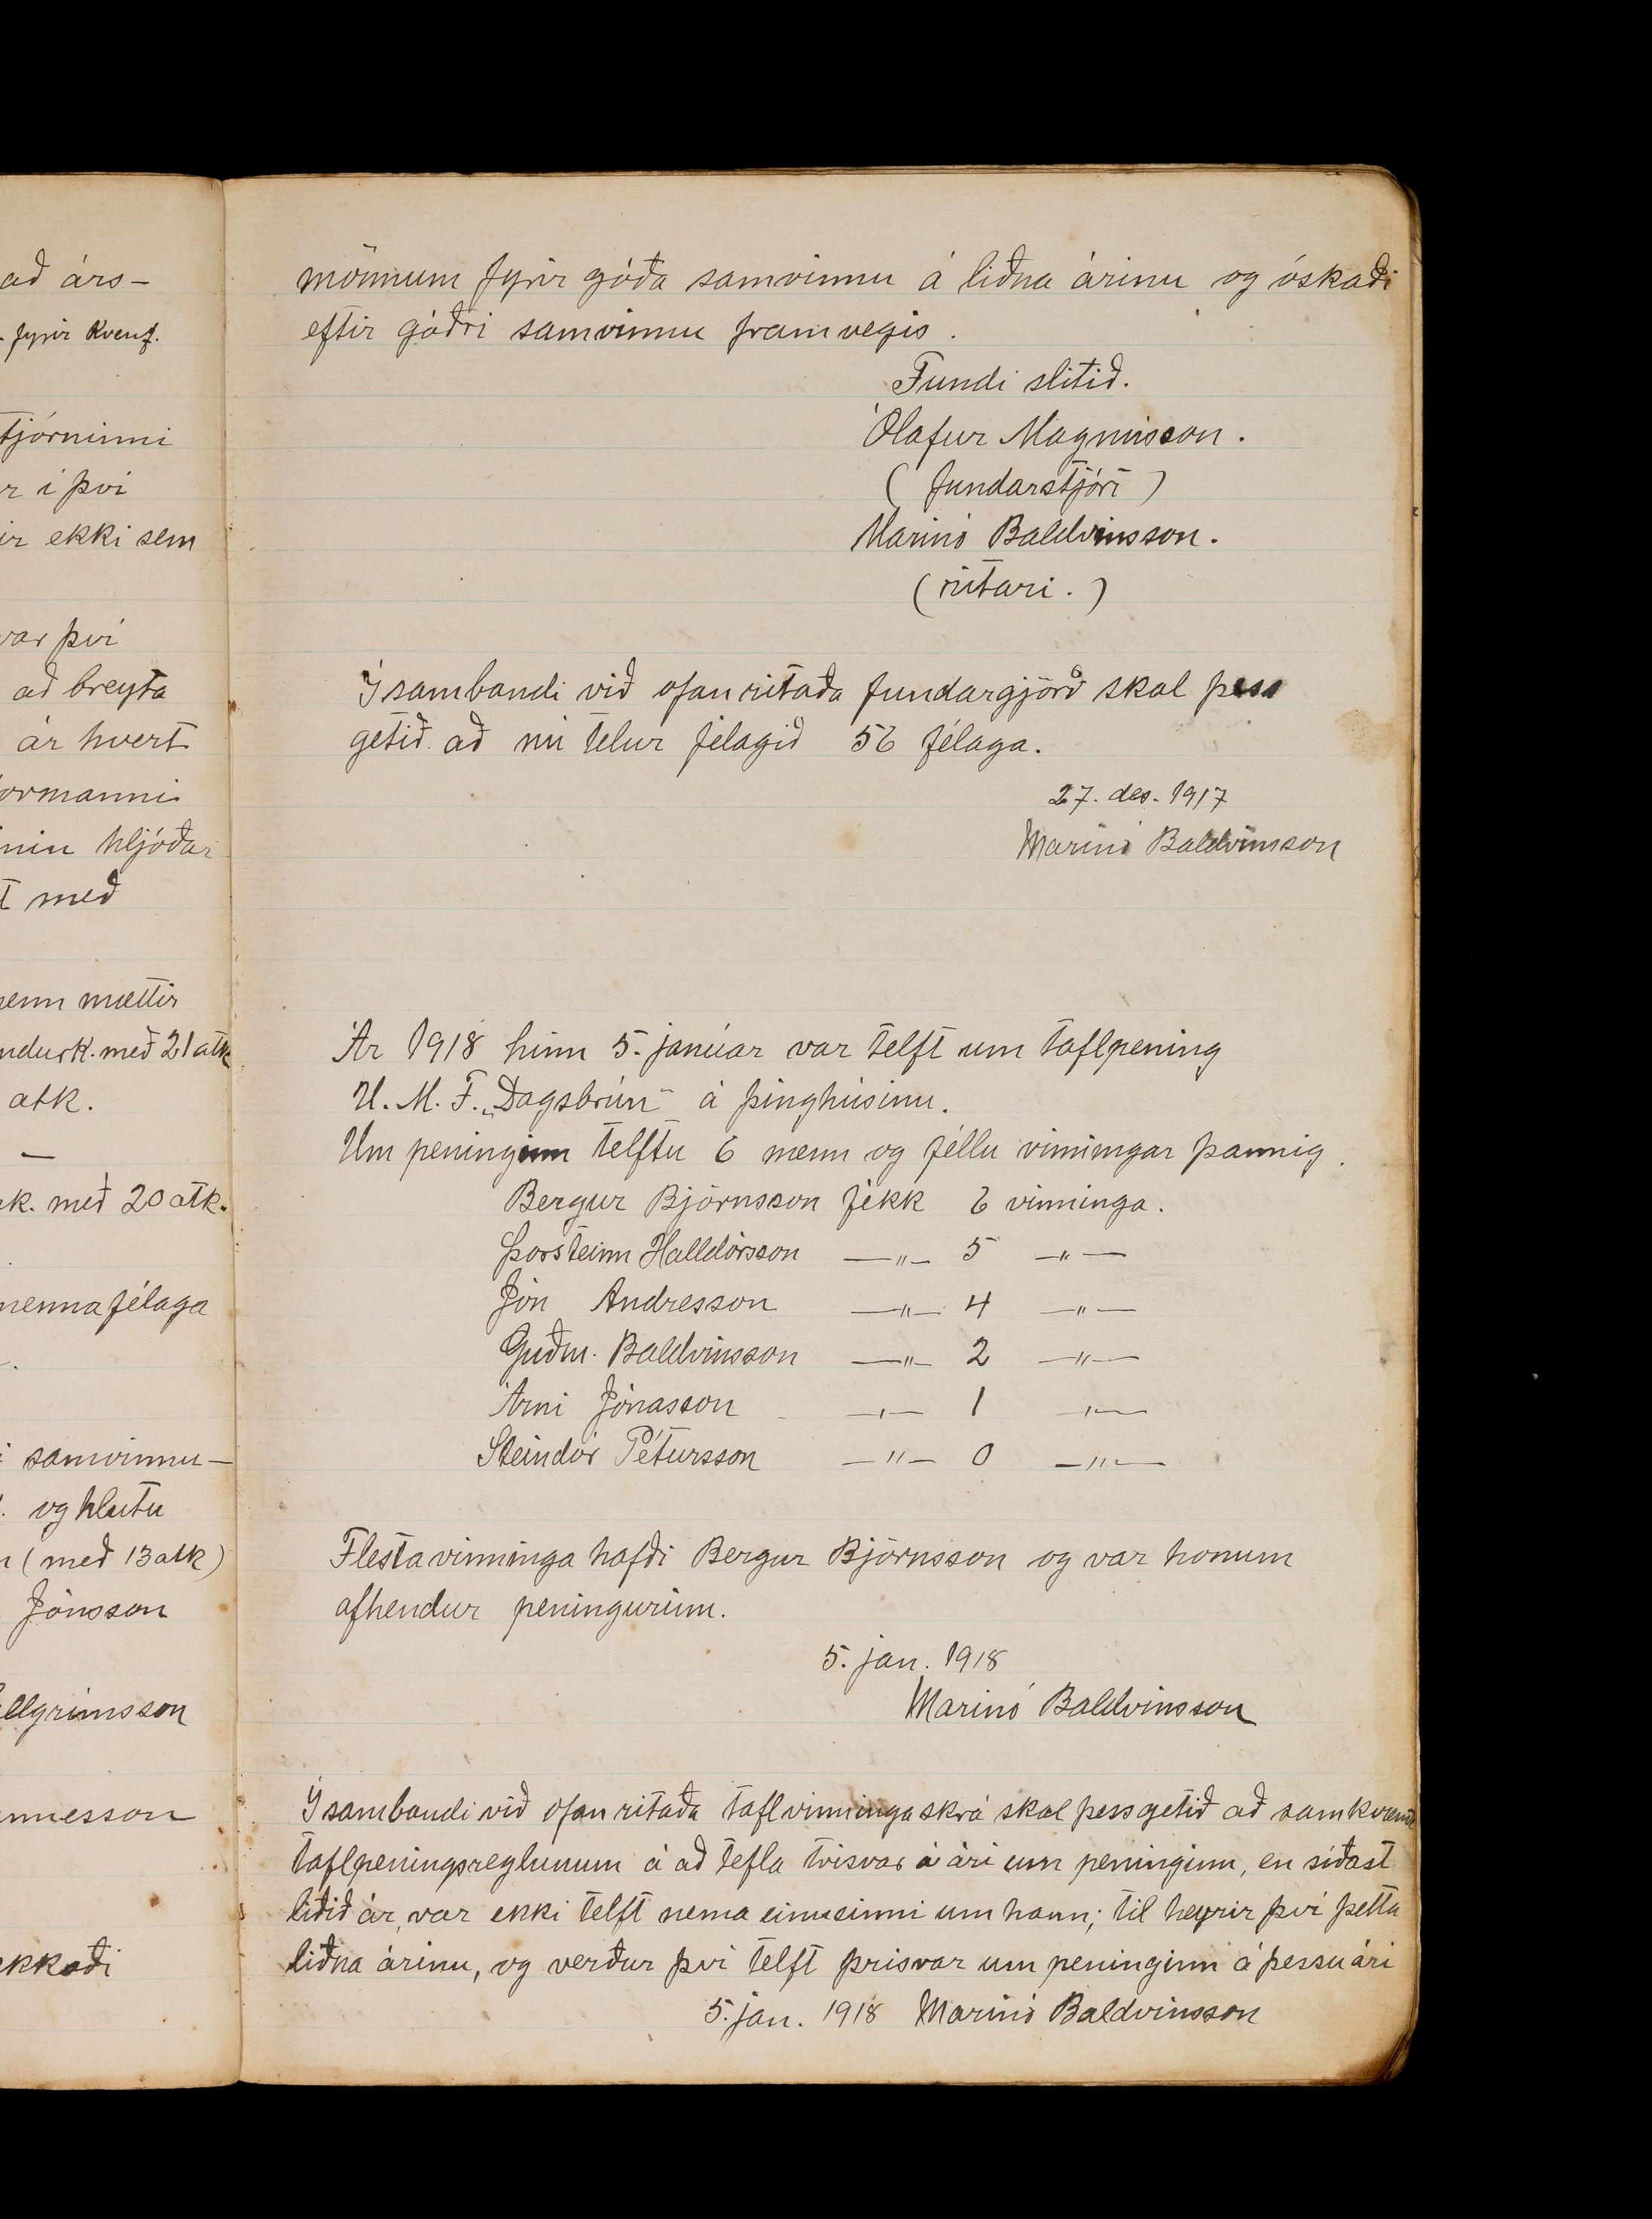 að árs-
fyrir Kvenf.
tjórninni
r í því
ir ekki sem
var því
að breyta
ár hvert
ormanni
nin hljóðar
t með
enn mættir
ndurk. með 21 atk
atk.
—
rk. með 20 atk.
mennafélaga
í samvinnu-
og hlutu
(með 13 atk)
Jónsson
llgrímsson
nnesson
kkaði
mönnum fyrir góða samvinnu á liðna árinu og óskaði
eftir góðri samvinnu framvegis.
Fundi slitið.
Ólafur Magnússon.
(fundarstjóri)
Marinó Baldvinsson.
(ritari.)
Í sambandi við ofanritaða fundargjörð skal þess
getið að nú telur félagið 56 félaga.
27. des. 1917
Marinó Baldvinsson
Ár 1918 hinn 5. janúar var telft um taflpening
U. M. F. „Dagsbrún“ á þinghúsinu.
Um peninginn telftu 6 menn og féllu vinningar þannig.
Bergur Björnsson fékk 6 vinninga.
Þorsteinn Halldórsson —„— 5 —„—
Jón Andresson —„— 4 —„—
Guðm. Baldvinsson —„— 2 —„—
Árni Jónasson —„— 1 —„—
Steindór Pétursson —„— 0 —„—
Flesta vinninga hafði Bergur Björnsson og var honum
afhendur peningurinn.
5. jan. 1918
Marinó Baldvinsson
Í sambandi við ofanritaða taflvinningaskrá skal þess getið að samkvæmt
taflpeningsreglunum á að tefla tvisvar á ári um peninginn, en síðast
liðið ár, var ekki telft nema einusinni um hann; til heyrir því þetta
liðna árinu, og verður því telft þrisvar um peninginn á þessu ári
5. jan. 1918 Marinó Baldvinsson